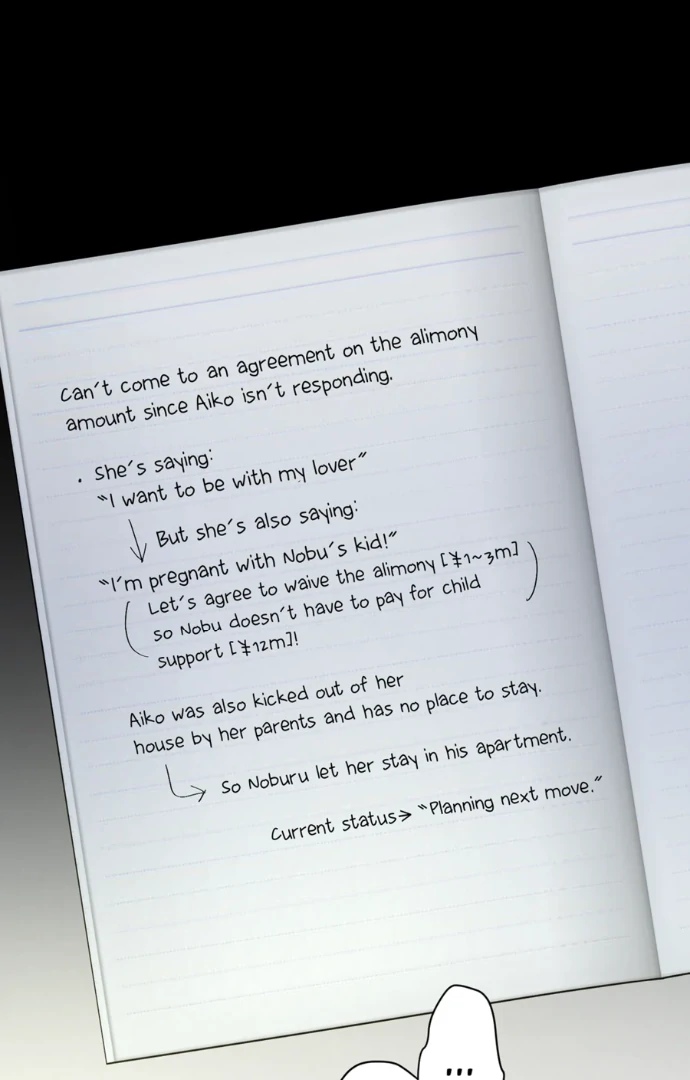 Can't come to an agreement on the alimony
amount since Aiko isn't responding.
· She's saying:
"I want to be with my lover"
But she's also saying:
"I'm pregnant with Nobu's kid!"
Let's agree to waive the alimony [¥1~3m]
so Nobu doesn't have to pay for child
support [¥12m]!
Aiko was also kicked out of her
house by her parents and has no place to stay.
↳ So Noburu let her stay in his apartment.
Current status→ "Planning next move."
...